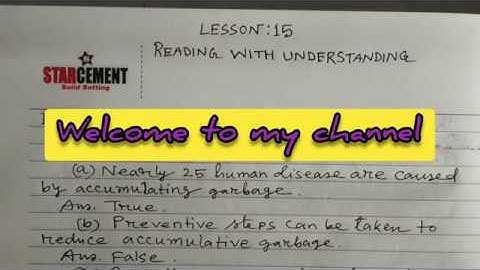 LESSON:15
READING WITH UNDERSTANDING
STARCEMENT
Solid Setting
Welcome to my channel
(a) Nearly 25 human disease are caused
by accumulating garbage.
Ans. True.
(b) Preventive steps can be taken to
reduce accumulative garbage.
Ans. False.